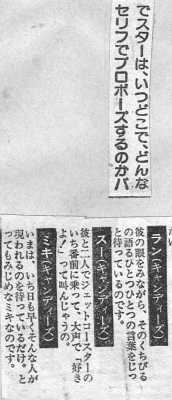 でスターは、いつどこで、どんな
セリフでプロポーズするのかバ
ラン（キャンディーズ）
彼の眼をみながら、そのくちびる
の語るひとつひとつの言葉をじっ
と待っているのです。
スー（キャンディーズ）
彼と二人でジェットコースターの
いち番前に乗って、大声で、「好き
よ！」って叫んじゃうの。
ミキ（キャンディーズ）
いまは、いち日も早くそんな人が
現われるのを待っているだけ。と
ってもみじめなキキなのです。